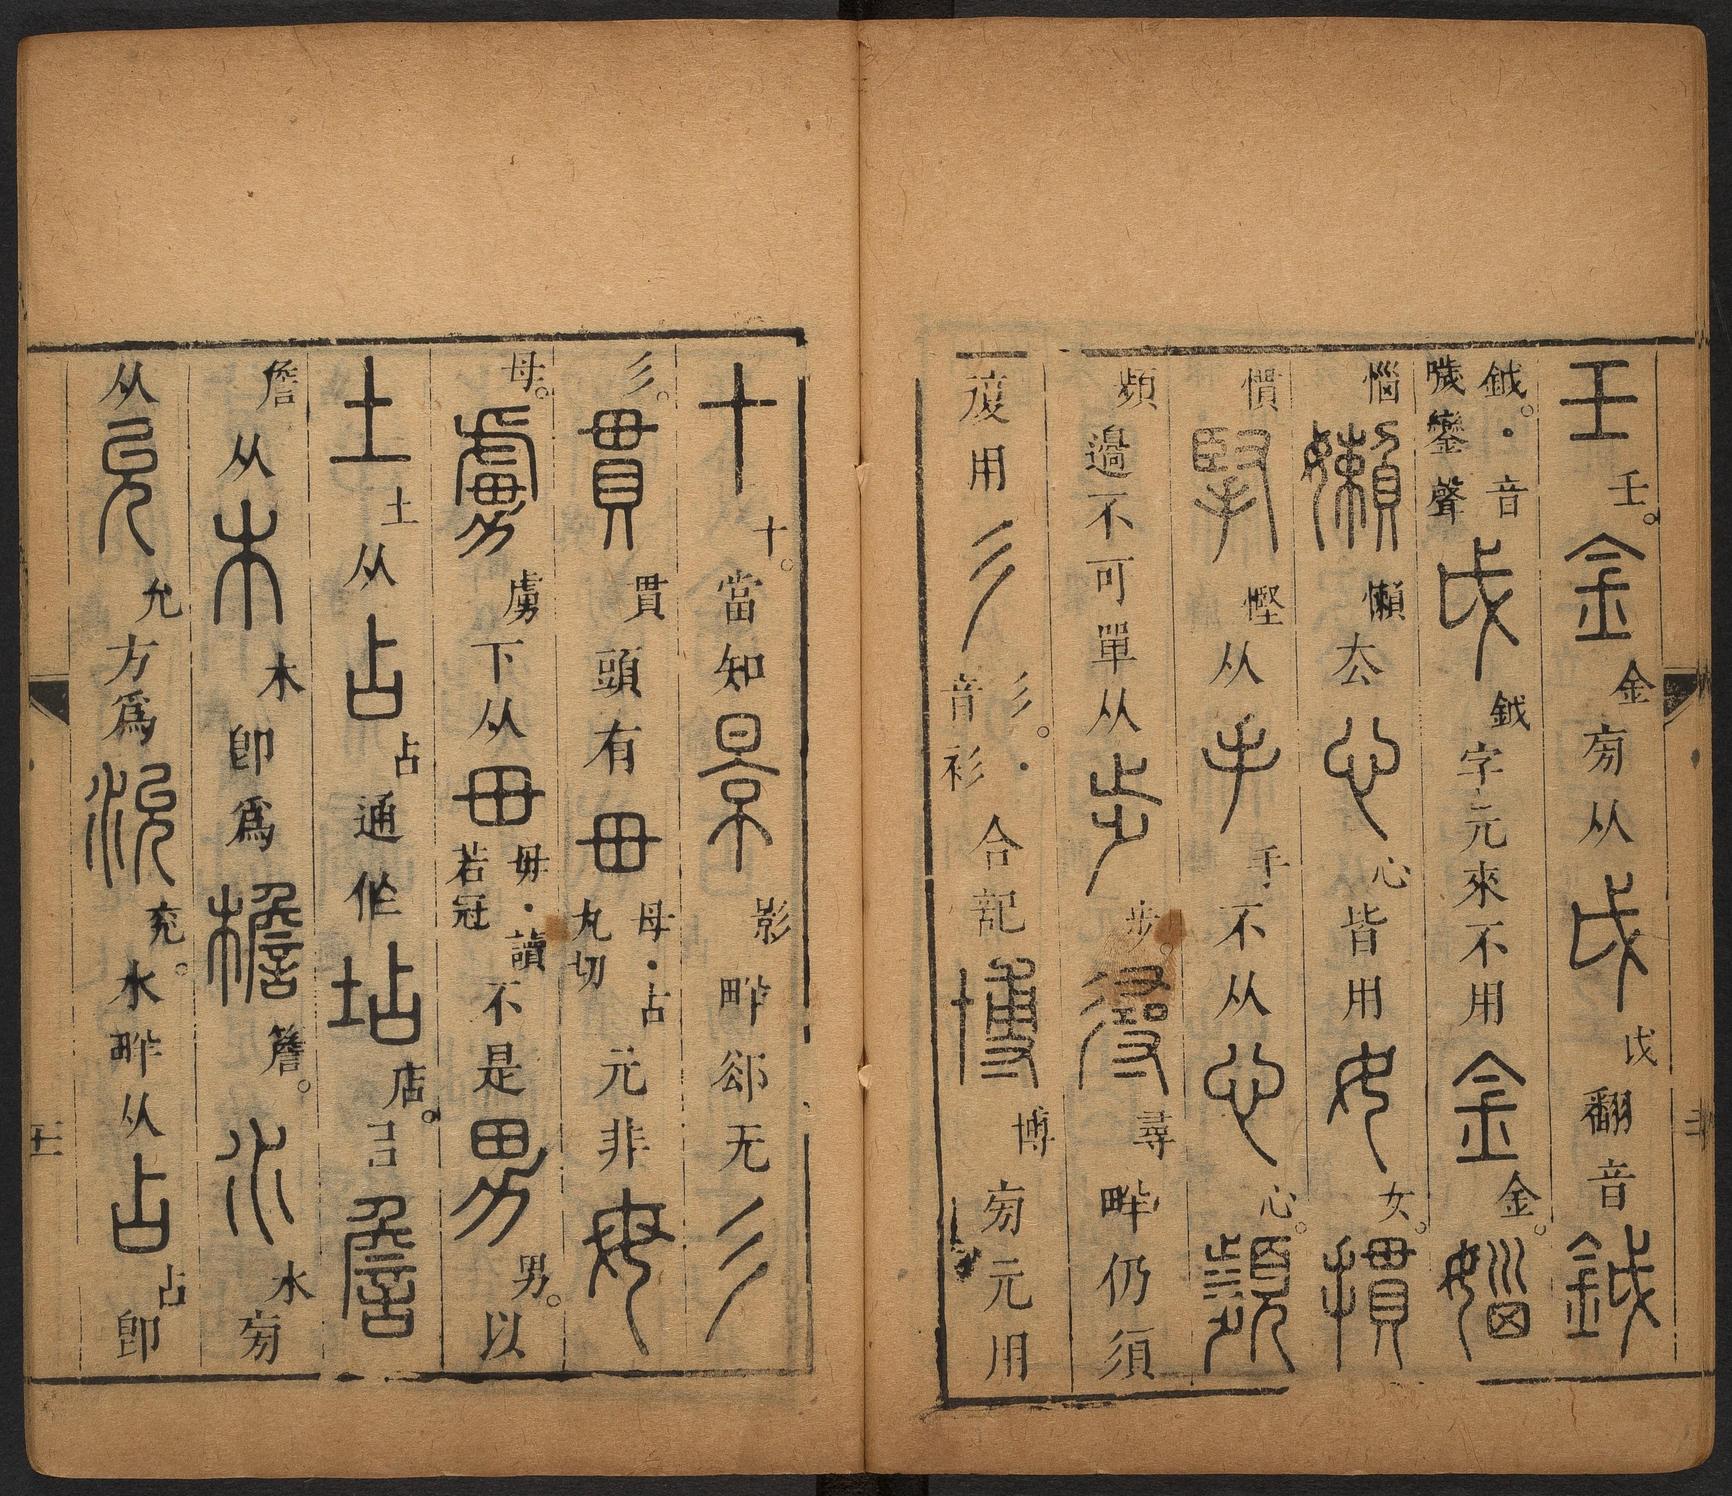 壬壬。金金㫄从戉戉翻音鉞
鉞。・音噦鑾聲戉鉞字元來不用金金。㛴
惱嬾懶厺心心皆用女女。摜
慣掔慳从手手不从心心。頻
頻邊不可單从步步。𢒫尋畔仍須
復用彡彡。・音衫合記博博㫄元用
十十。當知景影畔郤无彡
彡。貫貫頭有毌毋・占丸切元非母
母。虜虜下从毌毋・讀若冠不是男男。以
土土从占占通作坫店。言詹
詹从木木即爲檐簷。水水㫄
从允允方爲沇兖。水畔从占占即